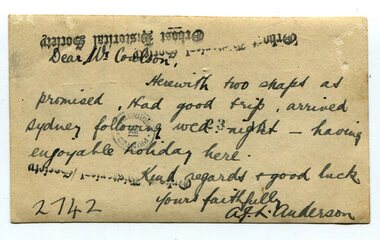 Orbost Historical Society
Dear Mr Coulson,
Herewith two snaps as
promised. Had good trip, arrived
Sydney following wed. night – having
enjoyable holiday here.
Kind regards & good luck
Yours faithfully
2742